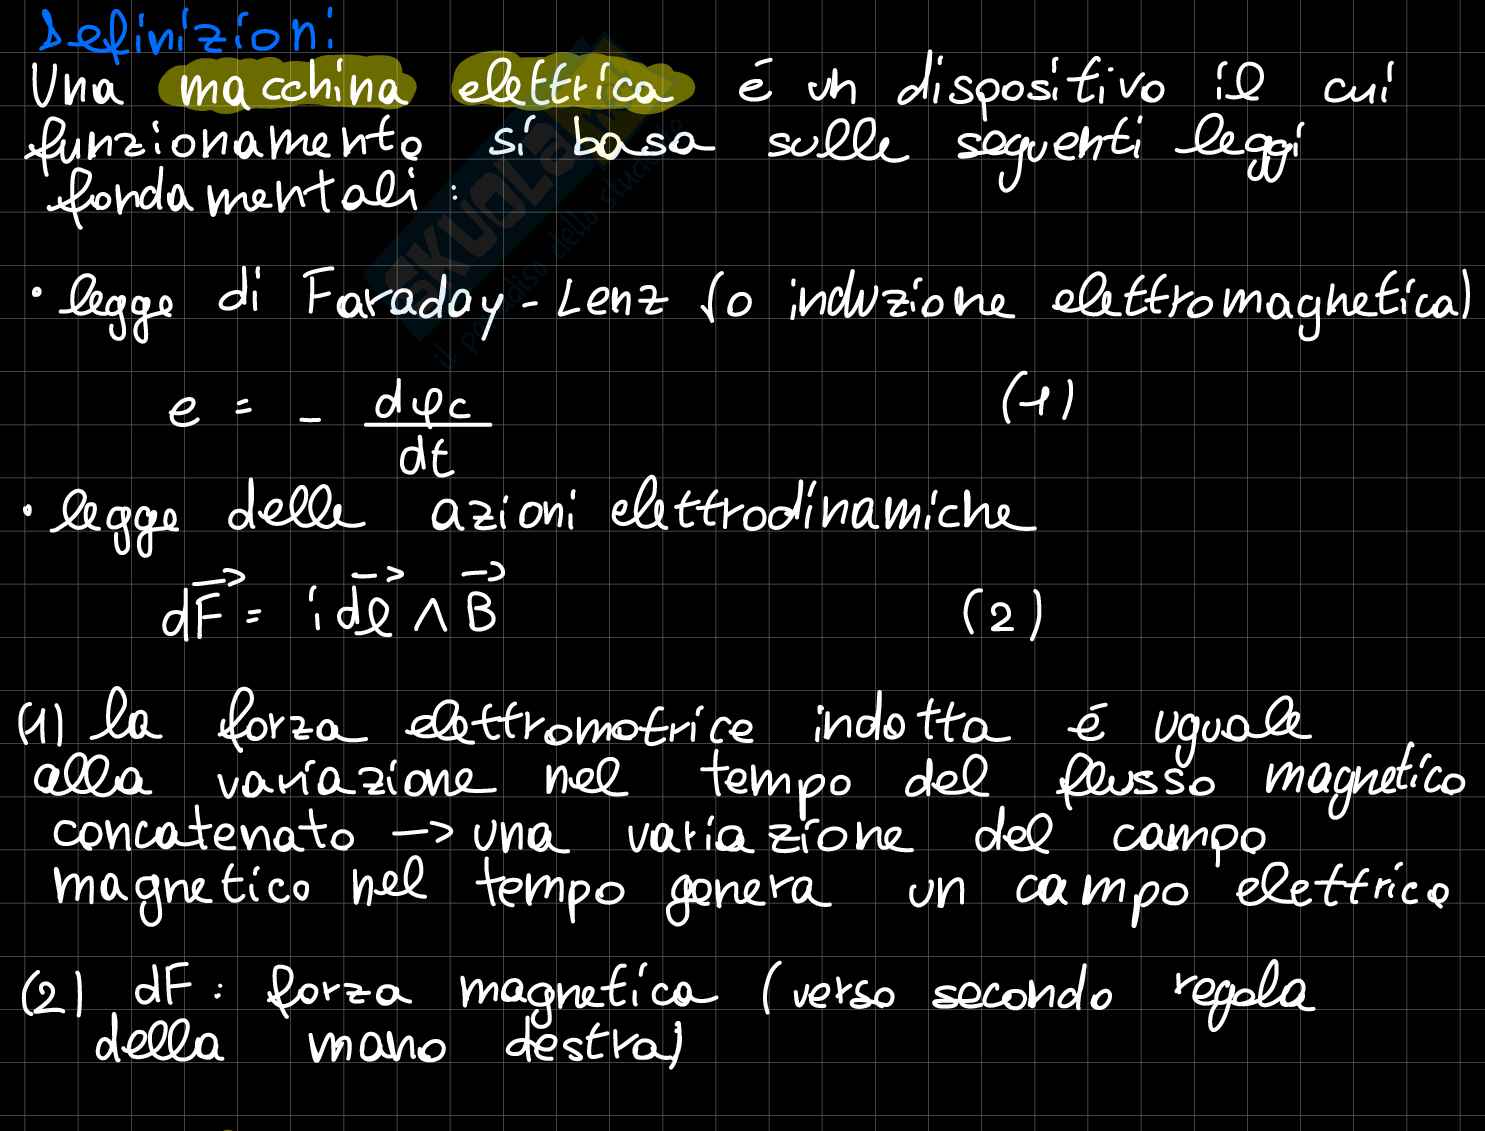 Definizioni
Una macchina elettrica é un dispositivo il cui
funzionamento si basa sulle seguenti leggi
fondamentali :
• legge di Faraday - Lenz (o induzione elettromagnetica)
e = - dφc/dt (1)
• legge delle azioni elettrodinamiche
dF⃗ = i dl⃗ ∧ B⃗ (2)
(1) la forza elettromotrice indotta é uguale
alla variazione nel tempo del flusso magnetico
concatenato -> una variazione del campo
magnetico nel tempo genera un campo elettrico
(2) dF : forza magnetica (verso secondo regola
della mano destra)
SKUOLA
il paradiso dello